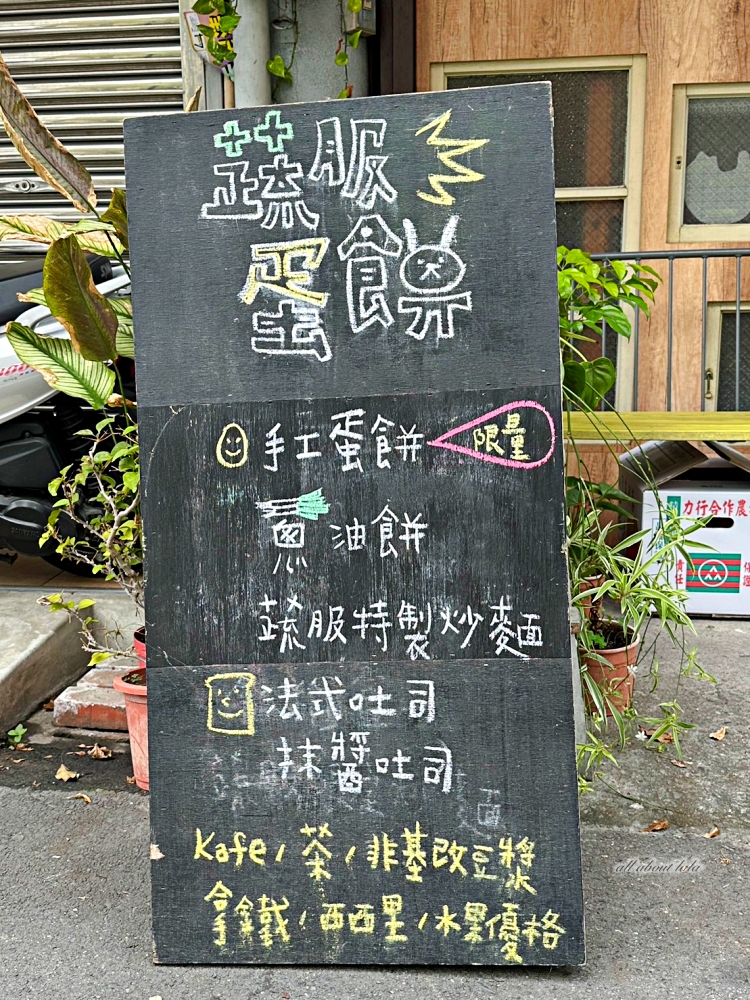 蔬服
蛋餅
手工蛋餅 限量
蔥油餅
蔬服特製炒麵
法式吐司
抹醬吐司
Kafe/茶/非基改豆漿
拿鐵/西西里/水果優格
力行合作農
責任
all about lola